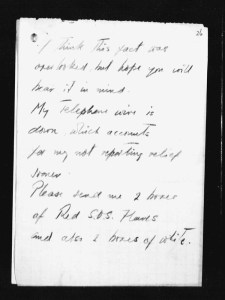 26
I think this fact was
overlooked, but hope you will
bear it in mind.
My telephone wire is
down, which accounts
for my not reporting relief
sooner.
Please send me 2 boxes
of Red S.O.S. Flares
and also 2 boxes of white.